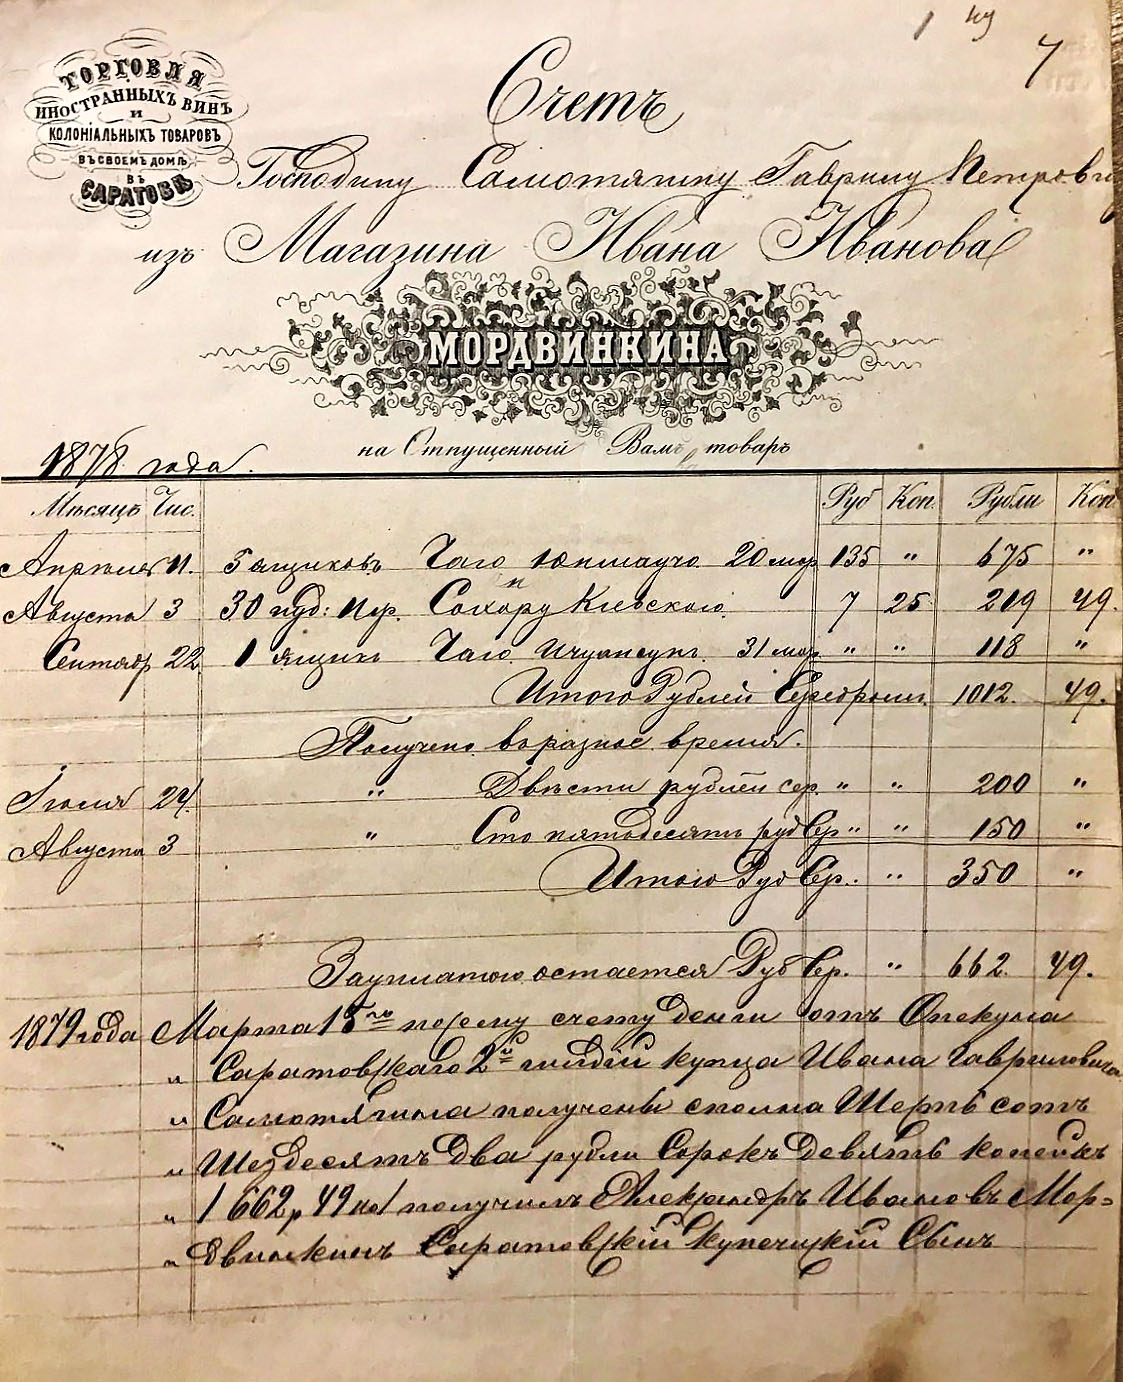 7
ТОРГОВЛЯ
ИНОСТРАННЫХЪ ВИНЪ
И
КОЛОНІАЛЬНЫХЪ ТОВАРОВЪ
ВЪ СВОЕМЪ ДОМѢ
ВЪ
САРАТОВѢ
Счетъ
Господину Самотяпину Гаврилу Петрович
изъ Магазина Ивана Иванова
МОРДВИНКИНА
на Отпущенный Вамъ товаръ
1878 года.
Мѣсяцъ Чис. Руб Коп. Рубли Коп
Апреля 11. 5 ящиковъ Чаю 20 мѣр 135 " 675 "
Августа 3 30 пуд: 11 ф. Сахару Кіевскаго 7 25 219 49.
Сентябр 22 1 ящикъ Чаю 31 мѣр " " 118 "
Итого Рублей Серебромъ 1012. 49.
Получено въ разное время.
Іюля 24 " Двѣсти рублей сер. " " 200 "
Августа 3 " Сто пятдесятъ руб Сер " " 150 "
Итого Руб Сер. " 350 "
За уплатою остается Руб Сер. " 662 49.
1879 года Марта 15го по сему счету деньги отъ Опекуна
" Саратовскаго 2й гильдіи купца Ивана Гавриловича
" получены сполна Шесть сотъ
" Шездесятъ два рубли Сорокъ девять копейкъ
" / 662 р 49 ко / получилъ Александръ Ивановъ Мор=
" двинкинъ Саратовскій Купеческій Сынъ